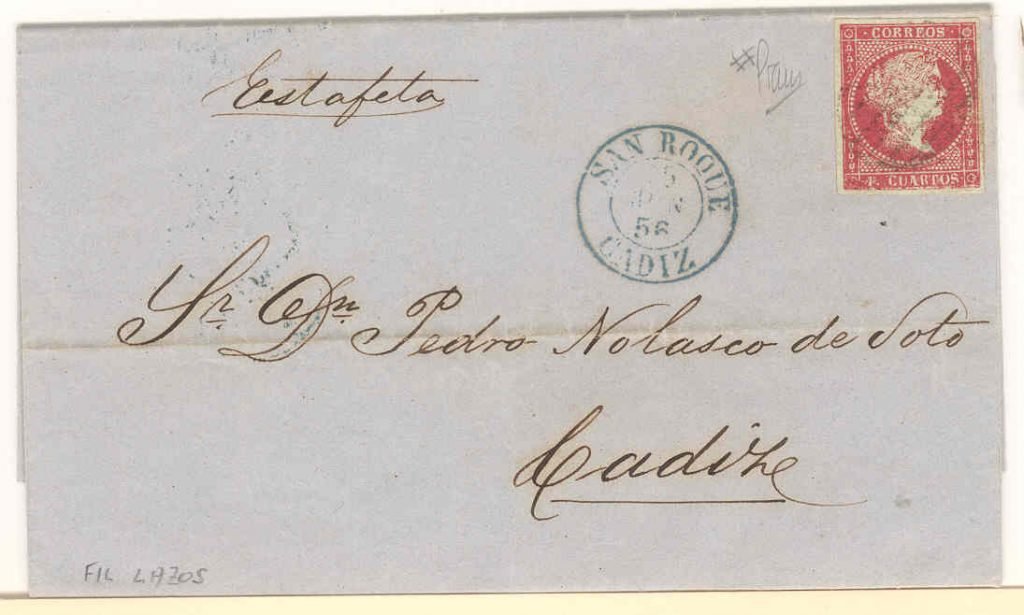 Estafeta
CORREOS
4. CUARTOS
SAN ROQUE
56
CADIZ
Sr. Dn. Pedro Nolasco de Soto
Cadiz
FIL LAZOS